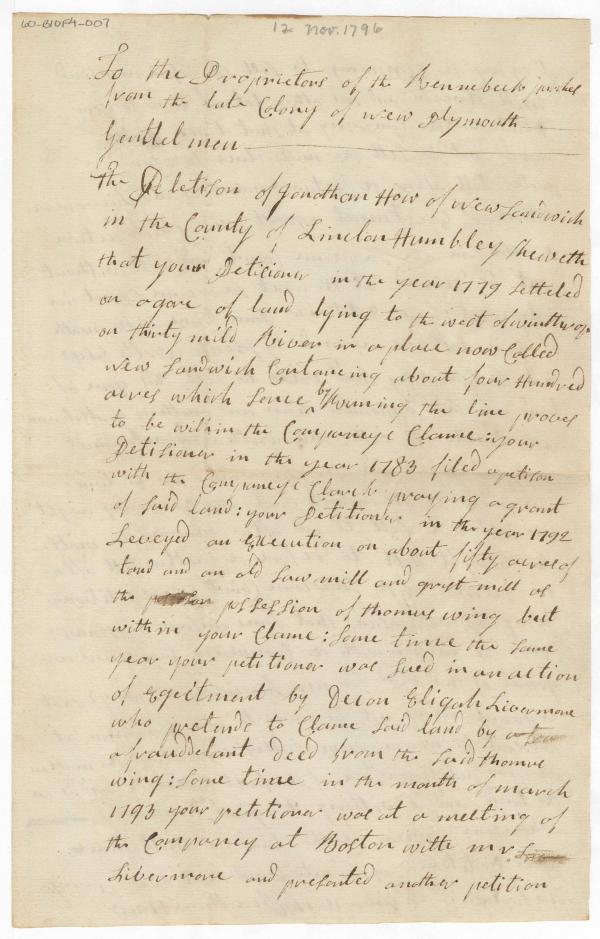 60-B10F4-007
12 Nov. 1796
To the Proprietors of the Kennebeck purches
from the late Colony of New Plymouth
Gentlelmen
the Peletison of Jonathan How of New Sandwich
in the County of LincLon Humbley Sheweth
that your Peticioner in the year 1779 Setteled
on a gore of land lying to the west of winthrop
on thirty mild River in a place now Called
New Sandwich Contaneing about four Hundred
acres which Sence by Runing the line proves
to be within the Companeye Clame: your
Petisioner in the year 1783 filed a petison
with the Companeye Clarck praying a grant
of Said land: your Petitioner in the year 1792
Leveyed an Execution on about fifty acres of
land and an old Saw mill and grest mill as
the possession of thomas wing but
within your Clame: Some time the Same
year your petitioner was Sued in an action
of Egectment by Decon Eligah Livermore
who pretends to Clame Said land by
a frauddelant Deed from the Said thomas
wing: Some time in the month of march
1793 your petitioner was at a meeting of
the Companey at Boston with mr.
Libermore and presented another petition